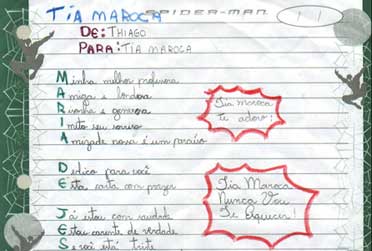 TIA MAROCA
SPIDER-MAN
DE: THIAGO
PARA: TIA MAROCA
Minha melhor professora
Amiga e bondosa
Risonha e generosa
Imito seu sorriso
Amizade nossa é um paraíso
Tia maroca
te adoro!
Dedico para você
Esta carta com prazer
Já estou com saudade
Estou carente de verdade
Se você está triste
Tia Maroca
Nunca Vou
Te Esquecer!